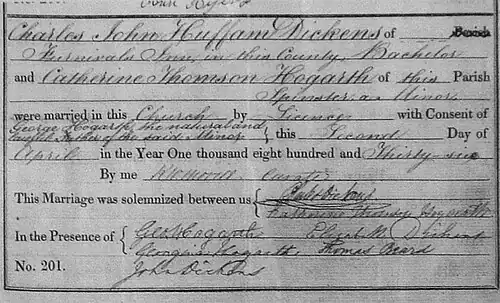 Charles John Huffam Dickens of Parish
Furnivals Inn, in this County, Bachelor
and Catherine Thomson Hogarth of this Parish
Spinster a Minor
were married in this Church by Licence with Consent of
George Hogarth the natural and
lawful Father of the said Minor { this Second Day of
April in the Year One thousand eight hundred and Thirty-six
By me curate
This Marriage was solemnized between us { Dickens
Catherine Thomson Hogarth
In the Presence of { Geo. Hogarth Dickens
Georgina Hogarth Thomas Beard
No. 201. John Dickens